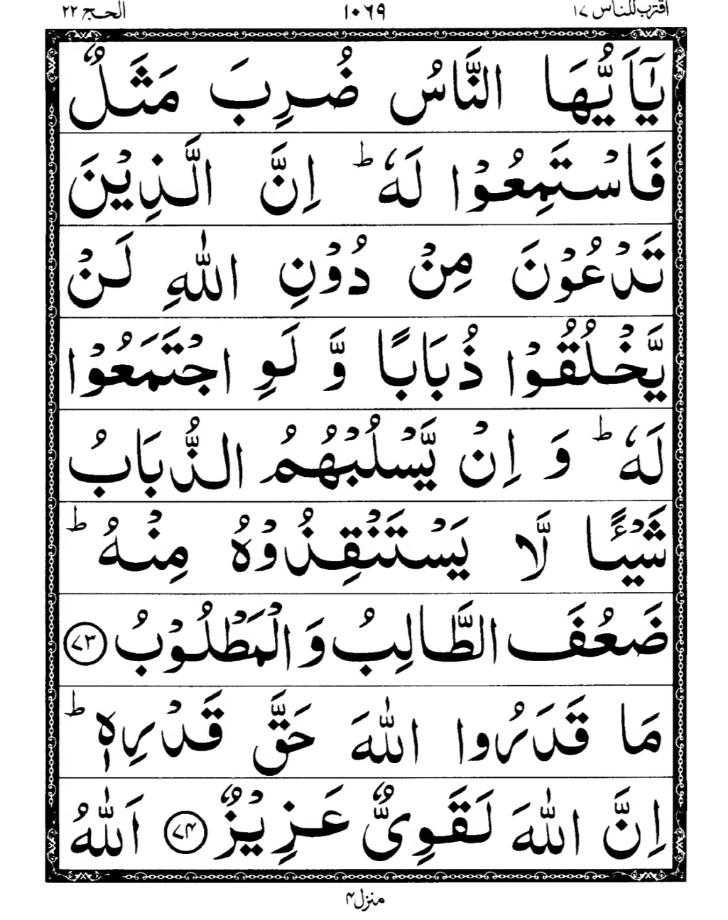 اقترب للناس ١٧ ١٠٦٩ الحج ٢٢
يٰۤاَيُّهَا النَّاسُ ضُرِبَ مَثَلٌ
فَاسْتَمِعُوْا لَهٗ ؕ اِنَّ الَّذِيْنَ
تَدْعُوْنَ مِنْ دُوْنِ اللّٰهِ لَنْ
يَّخْلُقُوْا ذُبَابًا وَّ لَوِ اجْتَمَعُوْا
لَهٗ ؕ وَ اِنْ يَّسْلُبْهُمُ الذُّبَابُ
شَيْـًٔا لَّا يَسْتَنْقِذُوْهُ مِنْهُ ؕ
ضَعُفَ الطَّالِبُ وَ الْمَطْلُوْبُ ﴿٧٣﴾
مَا قَدَرُوا اللّٰهَ حَقَّ قَدْرِهٖ ؕ
اِنَّ اللّٰهَ لَقَوِیٌّ عَزِيْزٌ ﴿٧٤﴾ اَللّٰهُ
منزل ۴